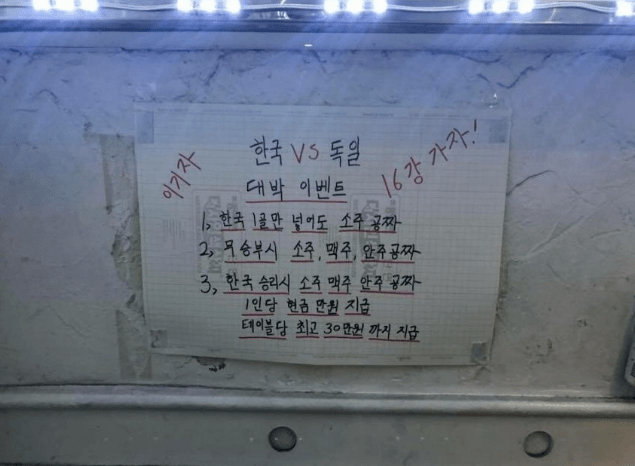 이기자
한국 VS 독일
16강 가자!
대박 이벤트
1, 한국 1골만 넣어도 소주 공짜
2, 무승부시 소주, 맥주, 안주 공짜
3, 한국 승리시 소주 맥주 안주 공짜
1인당 현금 만원 지급
테이블당 최고 30만원 까지 지급